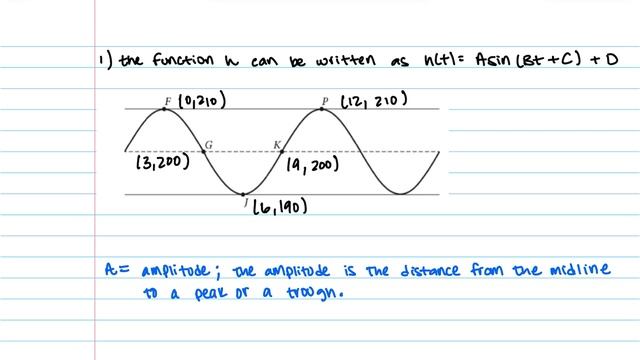 1) the function h can be written as h(t) = A sin (Bt + C) + D
F (0,210)
P (12, 210)
G
K
(3,200)
(9, 200)
J (6,190)
A = amplitude; the amplitude is the distance from the midline
to a peak or a trough.